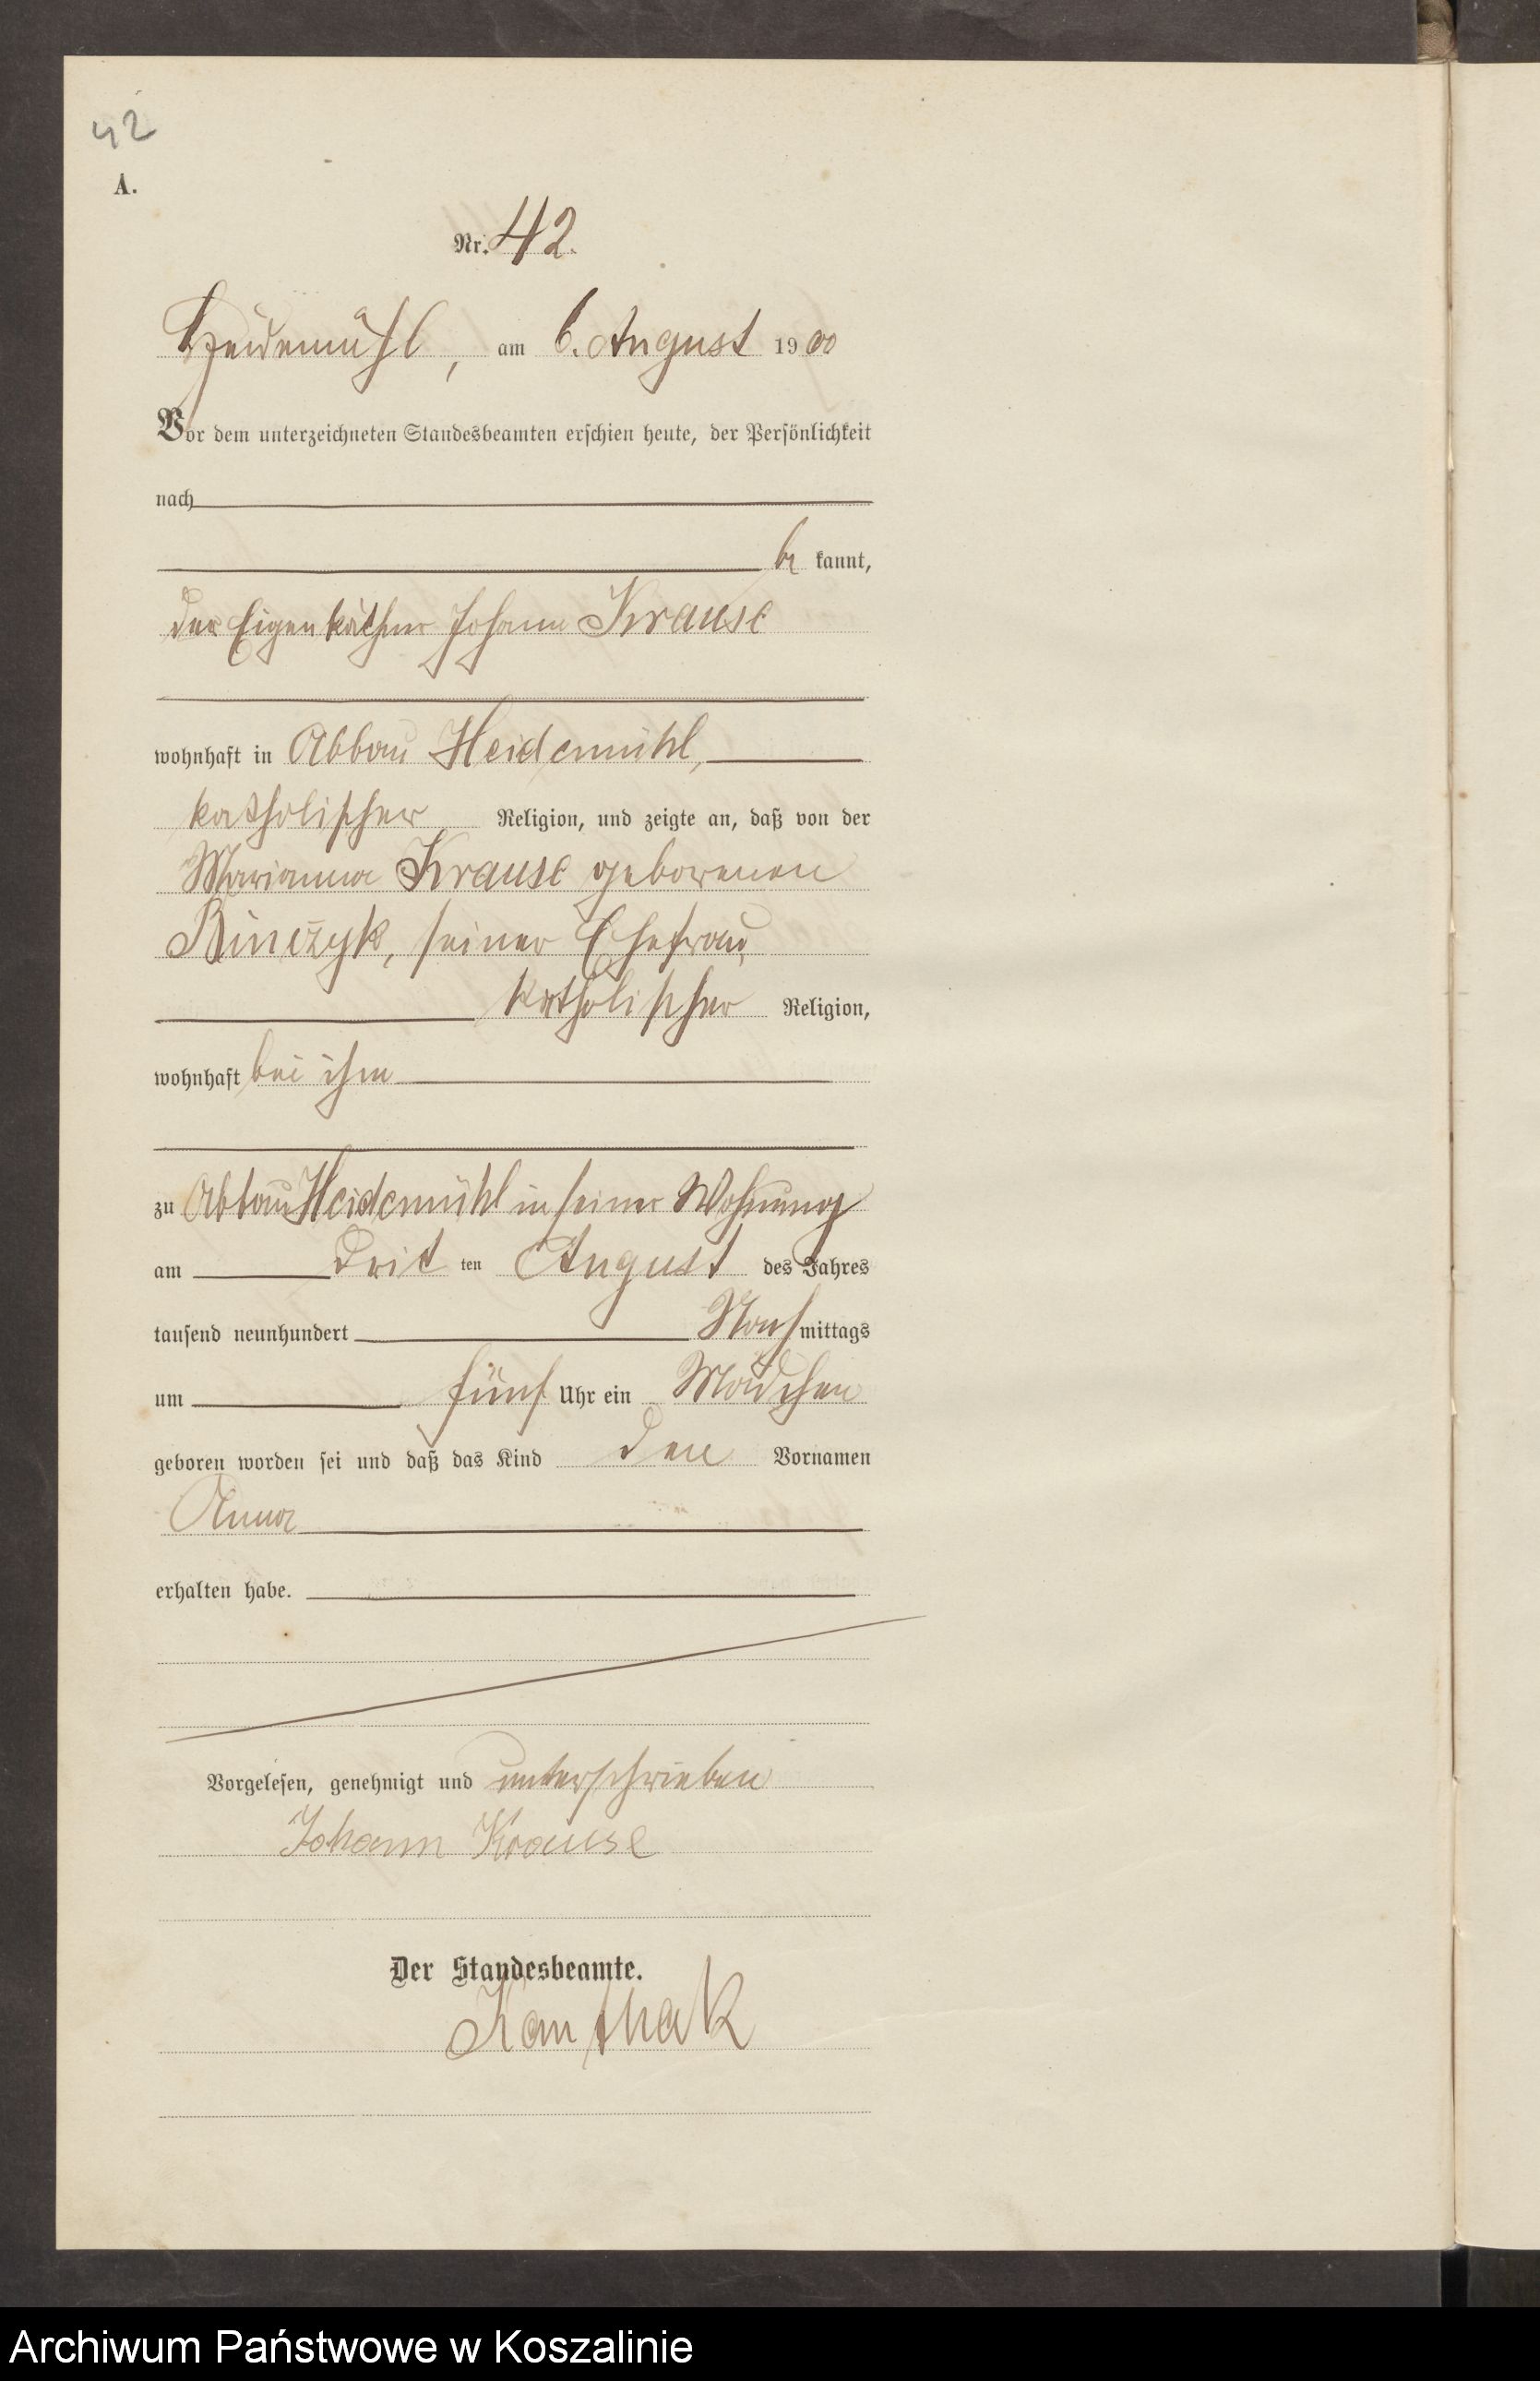 42
A.
Nr. 42.
Heidemühl, am 6. August 1900
Vor dem unterzeichneten Standesbeamten erschien heute, der Persönlichkeit
nach
be kannt,
der Eigenkäthner Johann Krause
wohnhaft in Abbau Heidemühl,
katholischer Religion, und zeigte an, daß von der
Marianna Krause geborenen
Binczyk, seiner Ehefrau,
katholischer Religion,
wohnhaft bei ihm
zu Abbau Heidemühl in seiner Wohnung
am Drit ten August des Jahres
tausend neunhundert Nachmittags
um fünf Uhr ein Mädchen
geboren worden sei und daß das Kind den Vornamen
Anna
erhalten habe.
Vorgelesen, genehmigt und unterschrieben
Johann Krause
Der Standesbeamte.
Kanthak
Archiwum Państwowe w Koszalinie